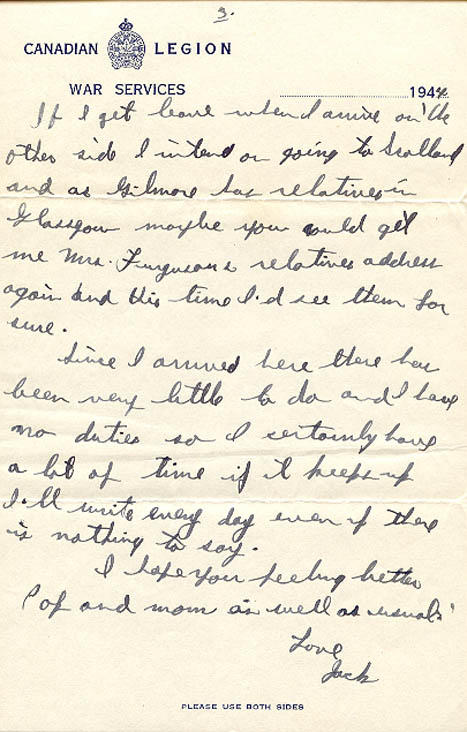 3.
CANADIAN LEGION
WAR SERVICES
1944
If I get leave when I arrive on the
other side I intend on going to Scotland
and as Gilmore has relatives in
Glasgow maybe you would get
me Mrs. Fergusons relatives address
again and this time I'd see them for
sure.
Since I arrived here there has
been very little to do and I have
no duties so I certainly have
a lot of time if it keeps up
I'll write every day even if there
is nothing to say.
I hope you feeling better
Pop and mom as well as usual.
Love
Jack
PLEASE USE BOTH SIDES